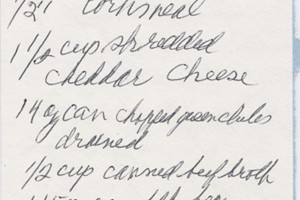 1/2 " cornmeal
1 1/2 cup shredded
cheddar cheese
1 4 oz can chopped green chiles
drained
1/2 cup canned beef broth